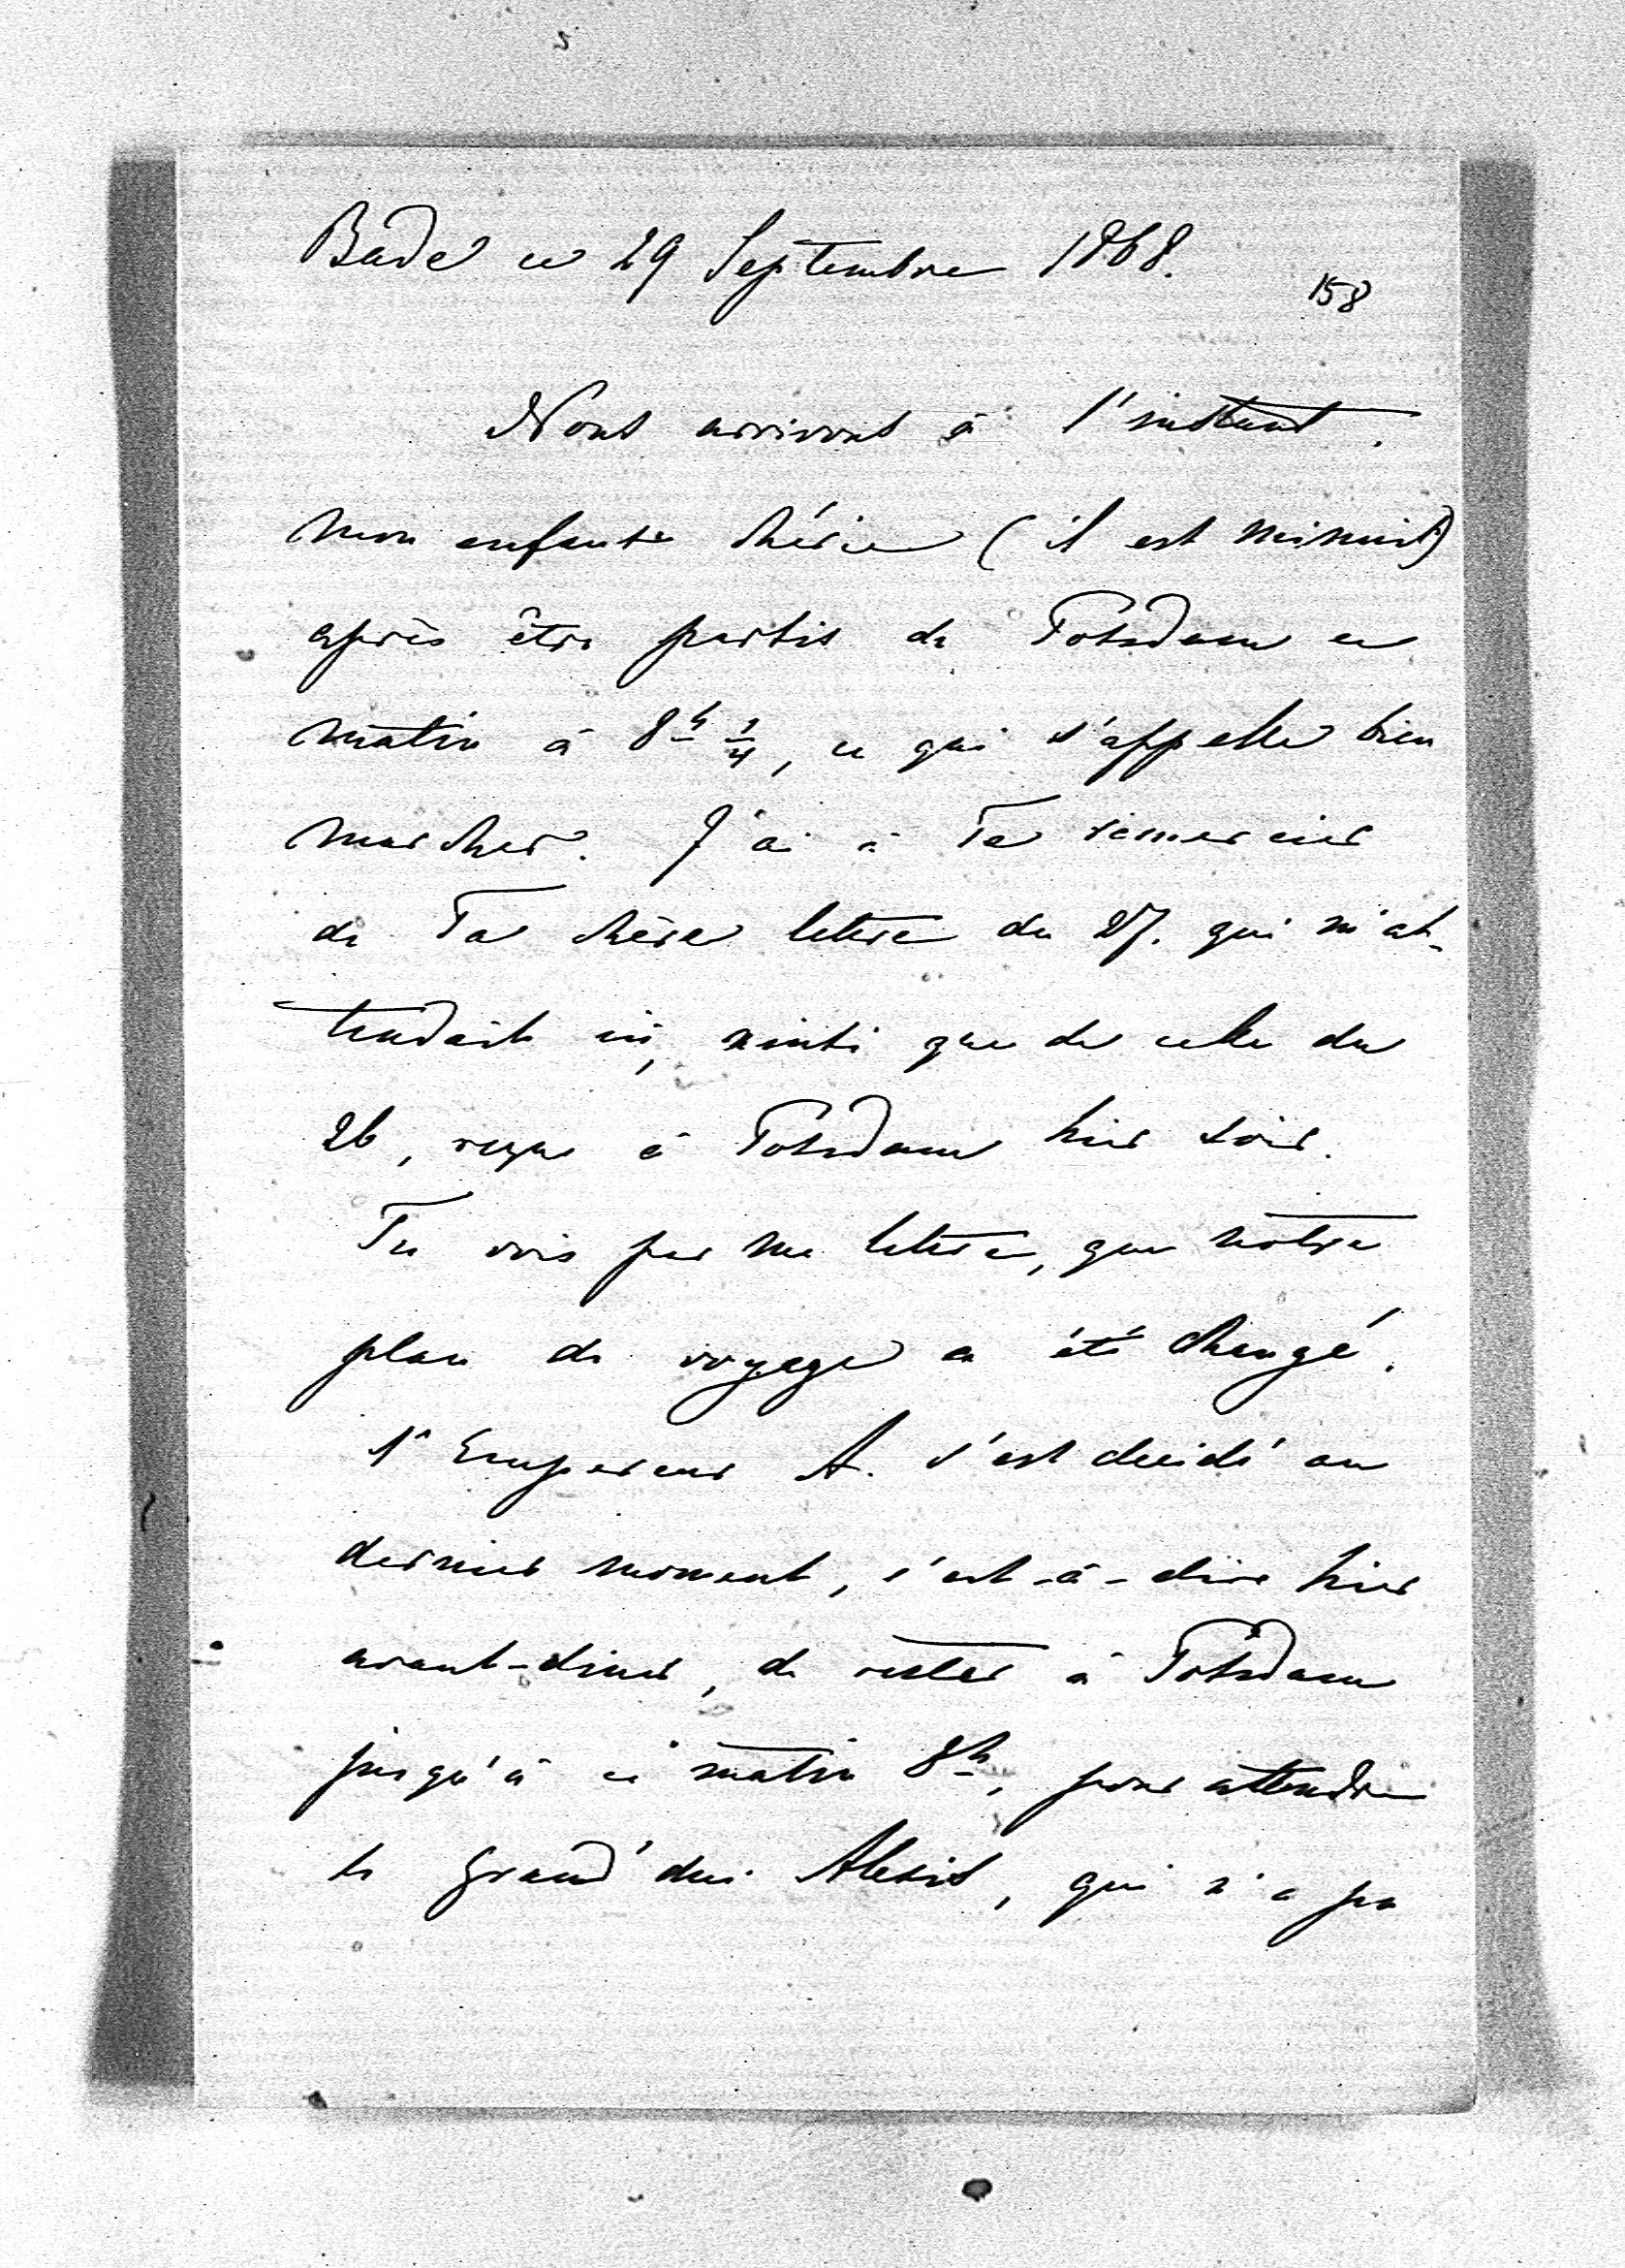 Bade ce 29 Septembre 1868.
158
Nous arrivons à l'instant,
mon enfant chérie (il est minuit)
après être partis de Potsdam ce
matin à 8h 1/4, ce qui s'appelle bien
marcher. J'ai à Te remercier
de Ta chère lettre du 27. qui m'at-
tendait ici, ainsi que de celle du
26, reçue à Potsdam hier soir.
Tu vois par ma lettre, que notre
plan de voyage a été changé,
l'Empereur A. s'est decidé au
dernier moment, c'est-à-dire hier
avant-diner, de rester à Potsdam
jusqu'à ce matin 8h, pour attendre
le grand'duc Alexis, qui n'a pu